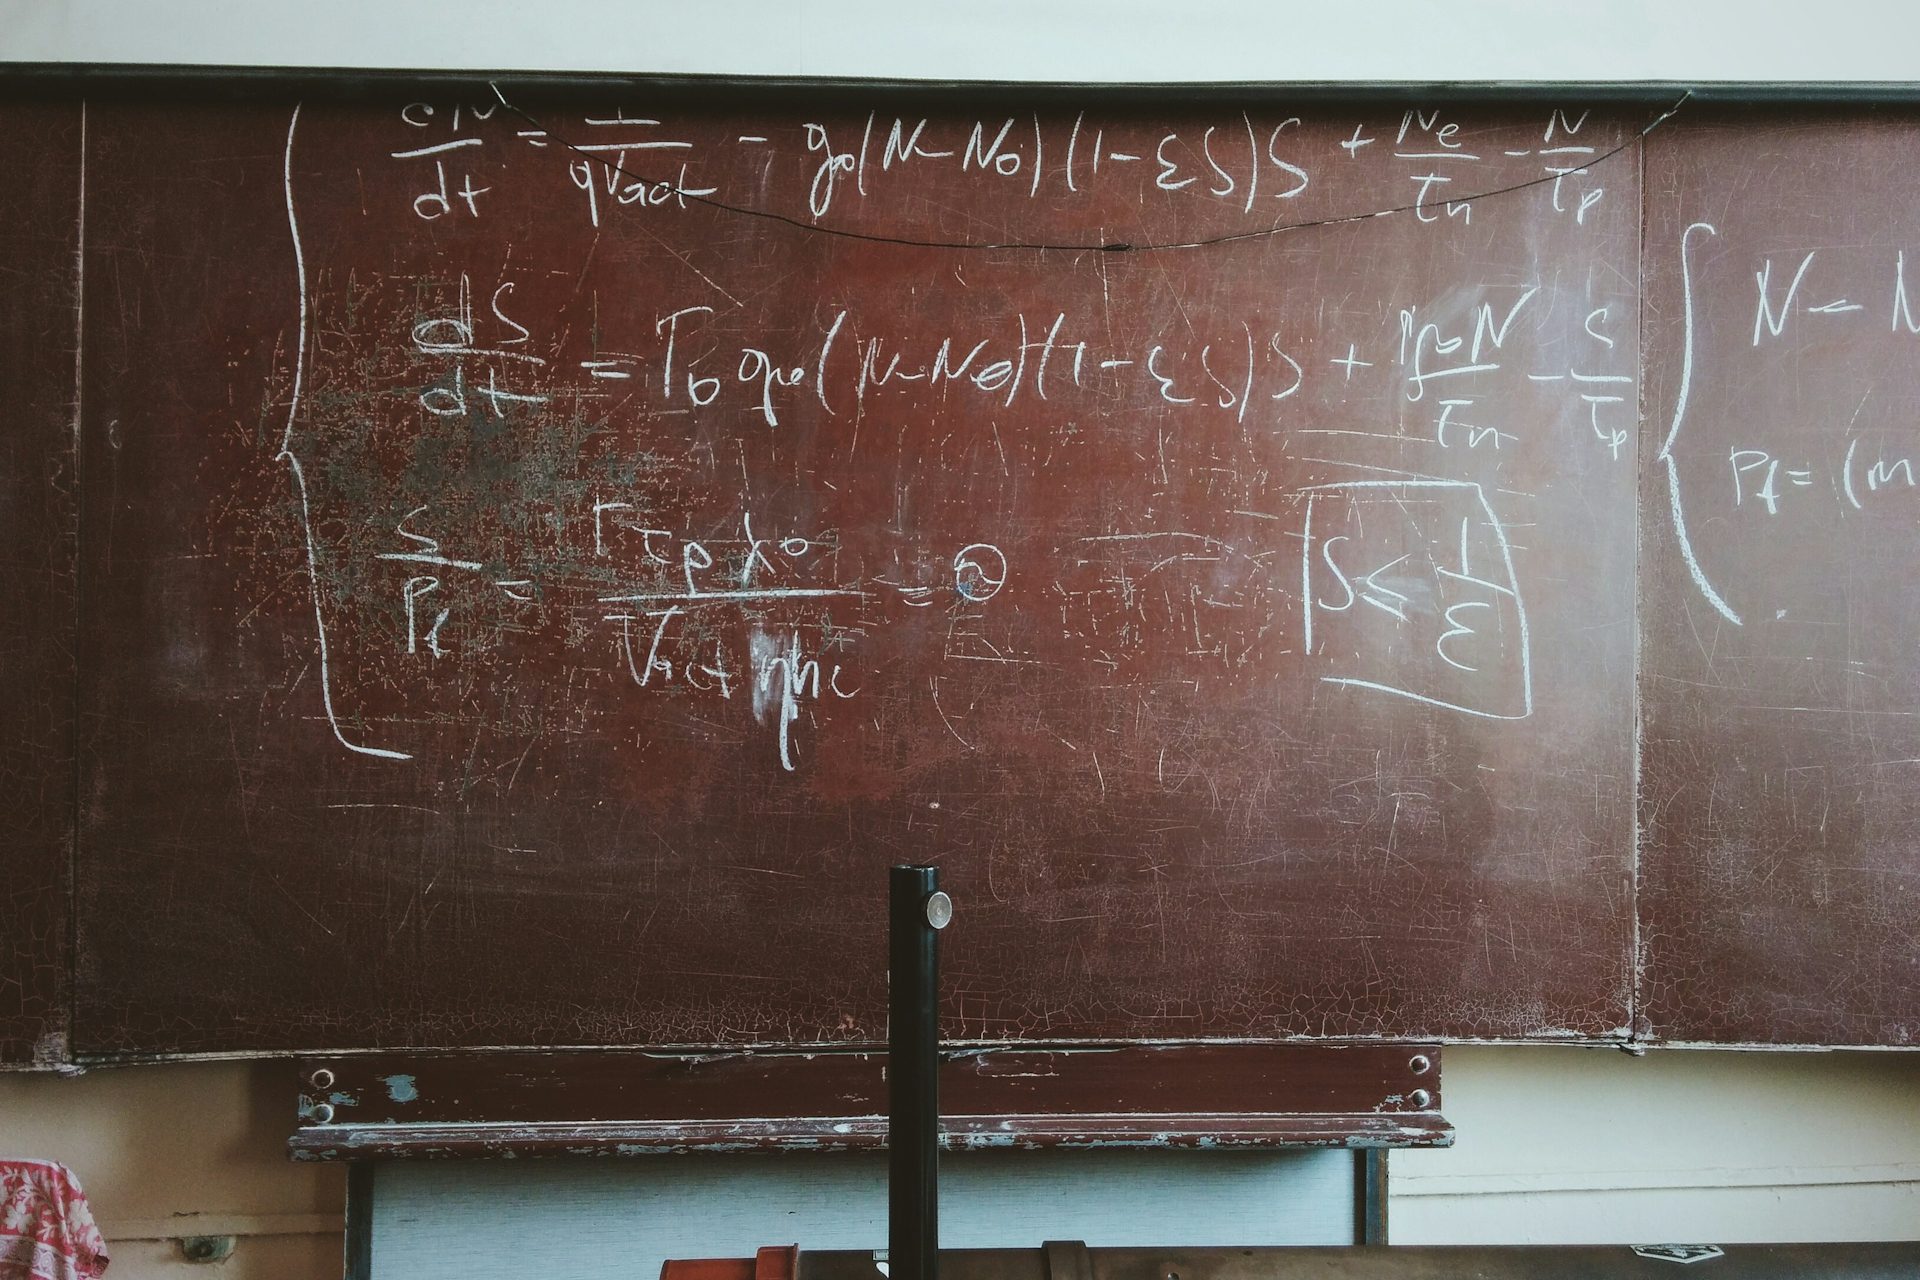 dN/dt = I/qVact - g0(N-N0)(1-εS)S + Ne/τn - N/τp
dS/dt = Γ0 g0(N-N0)(1-εS)S + Γβ0N/τn - S/τp
S/Pf = Γτpλ0/Vact ηhc = ℗
S ≤ 1/ε
N = N
Pf = (m